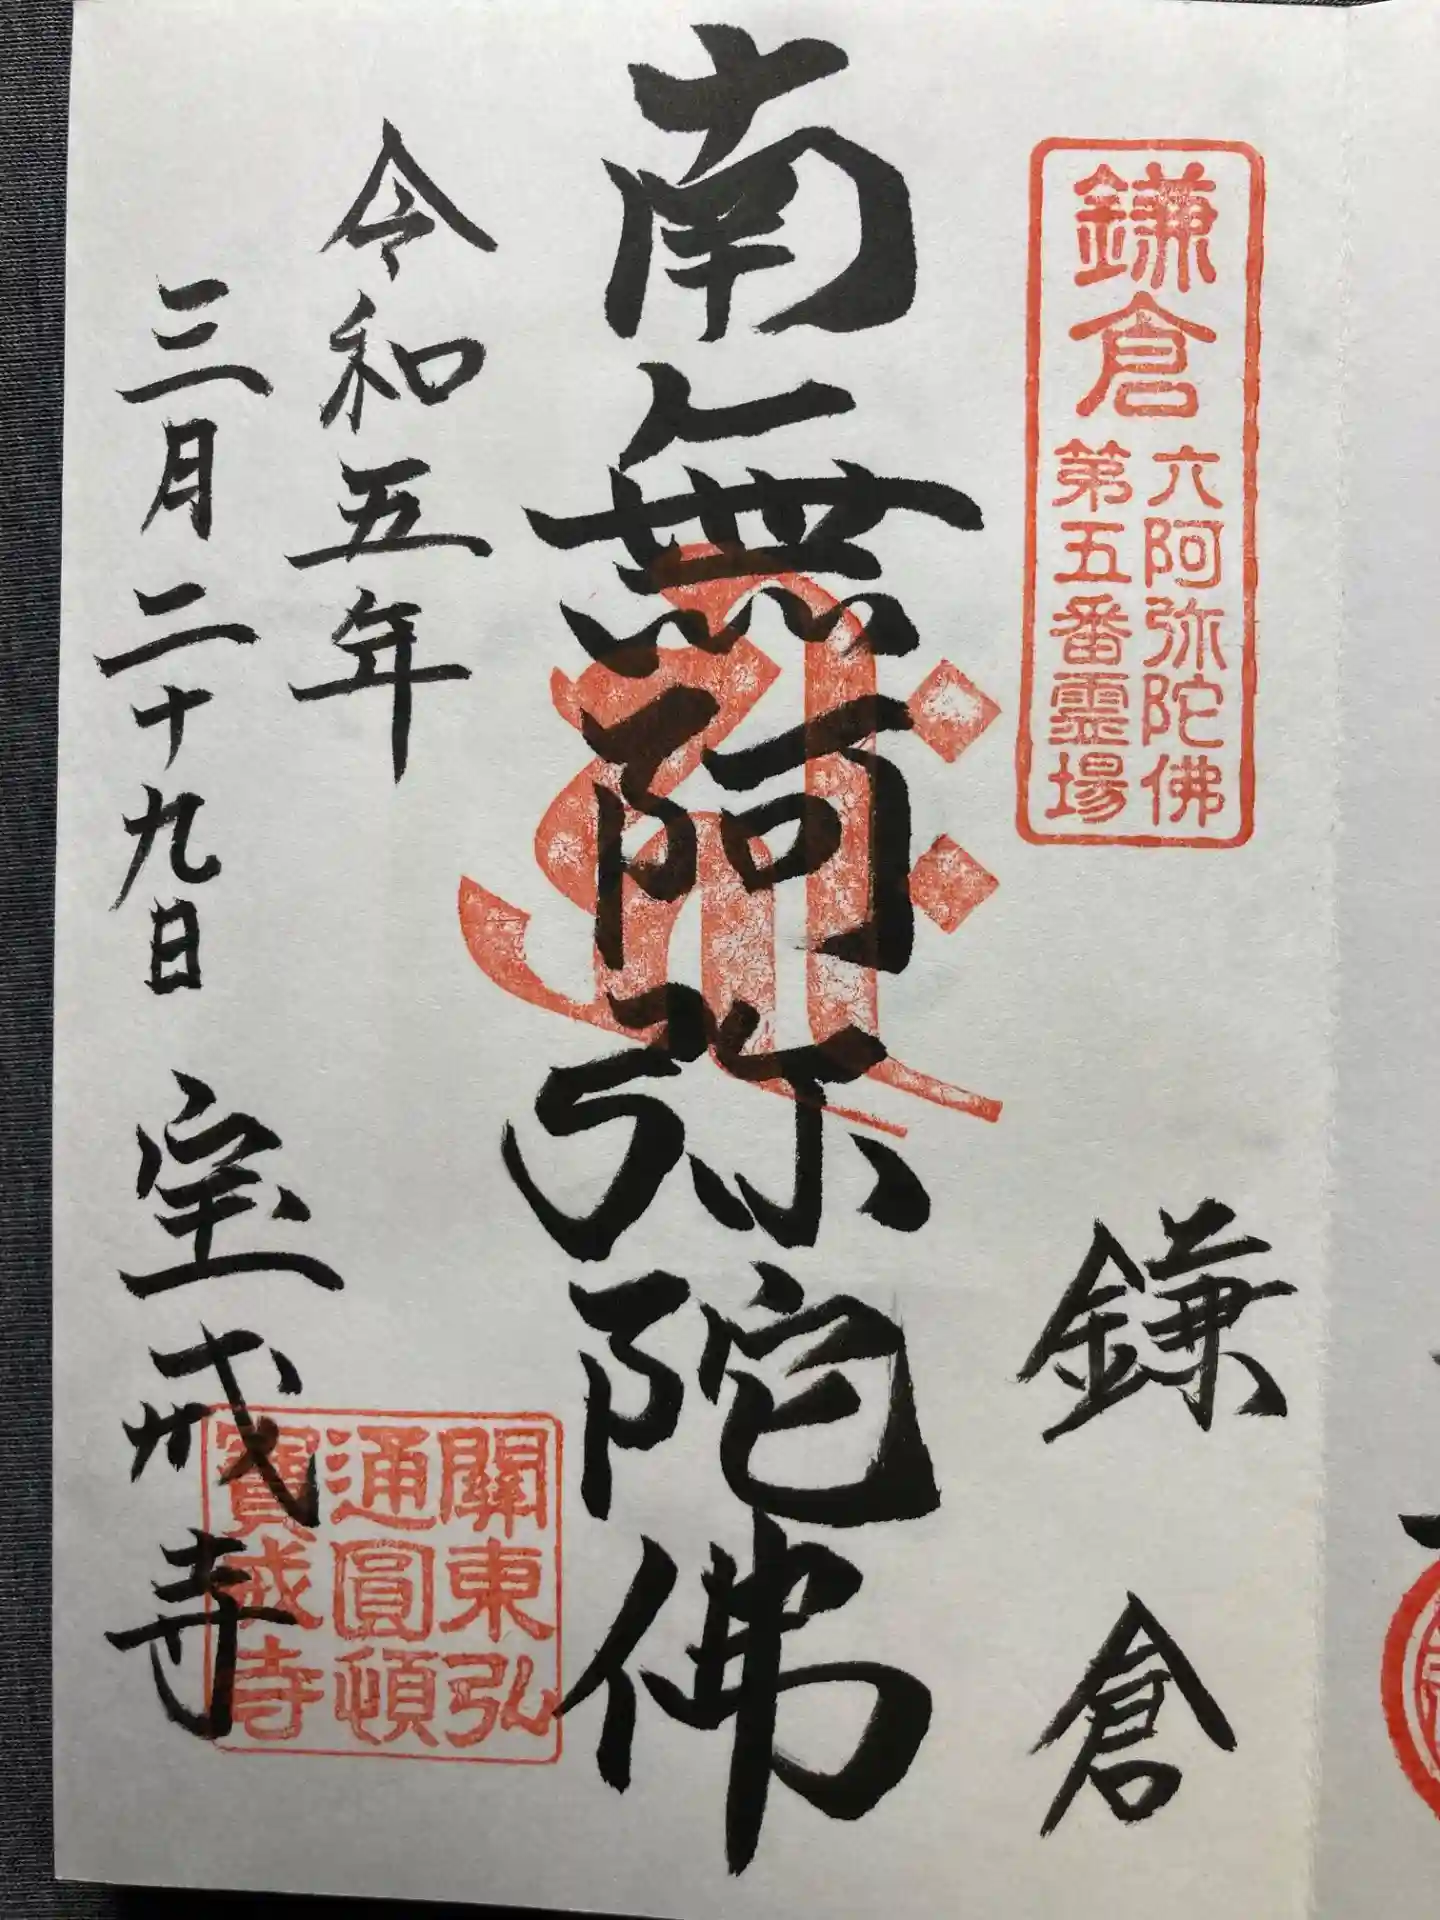 鎌倉
六阿弥陀佛
第五番霊場
鎌倉
南無阿弥陀佛
令和五年
三月二十九日 宝戒寺
關東弘
通圓頓
寶戒寺